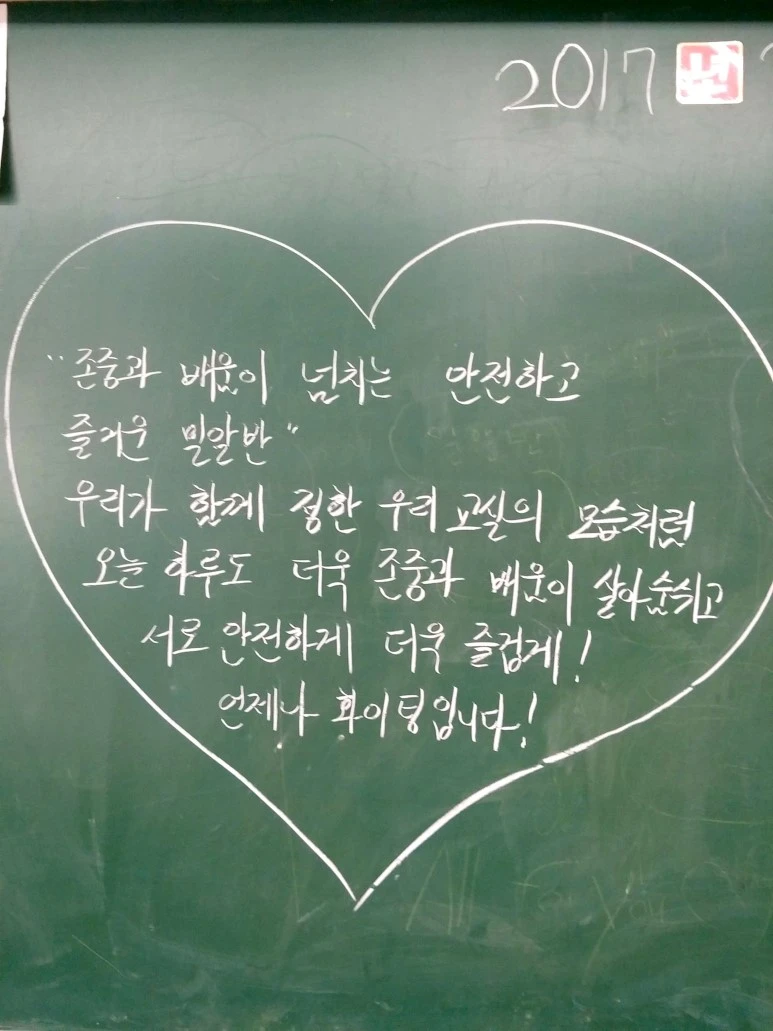 2017 년
"존중과 배움이 넘치는 안전하고
즐거운 밀알반"
우리가 함께 정한 우리 교실의 모습처럼
오늘 하루도 더욱 존중과 배움이 살아숨쉬고
서로 안전하게 더욱 즐겁게!
언제나 화이팅입니다!
All For You